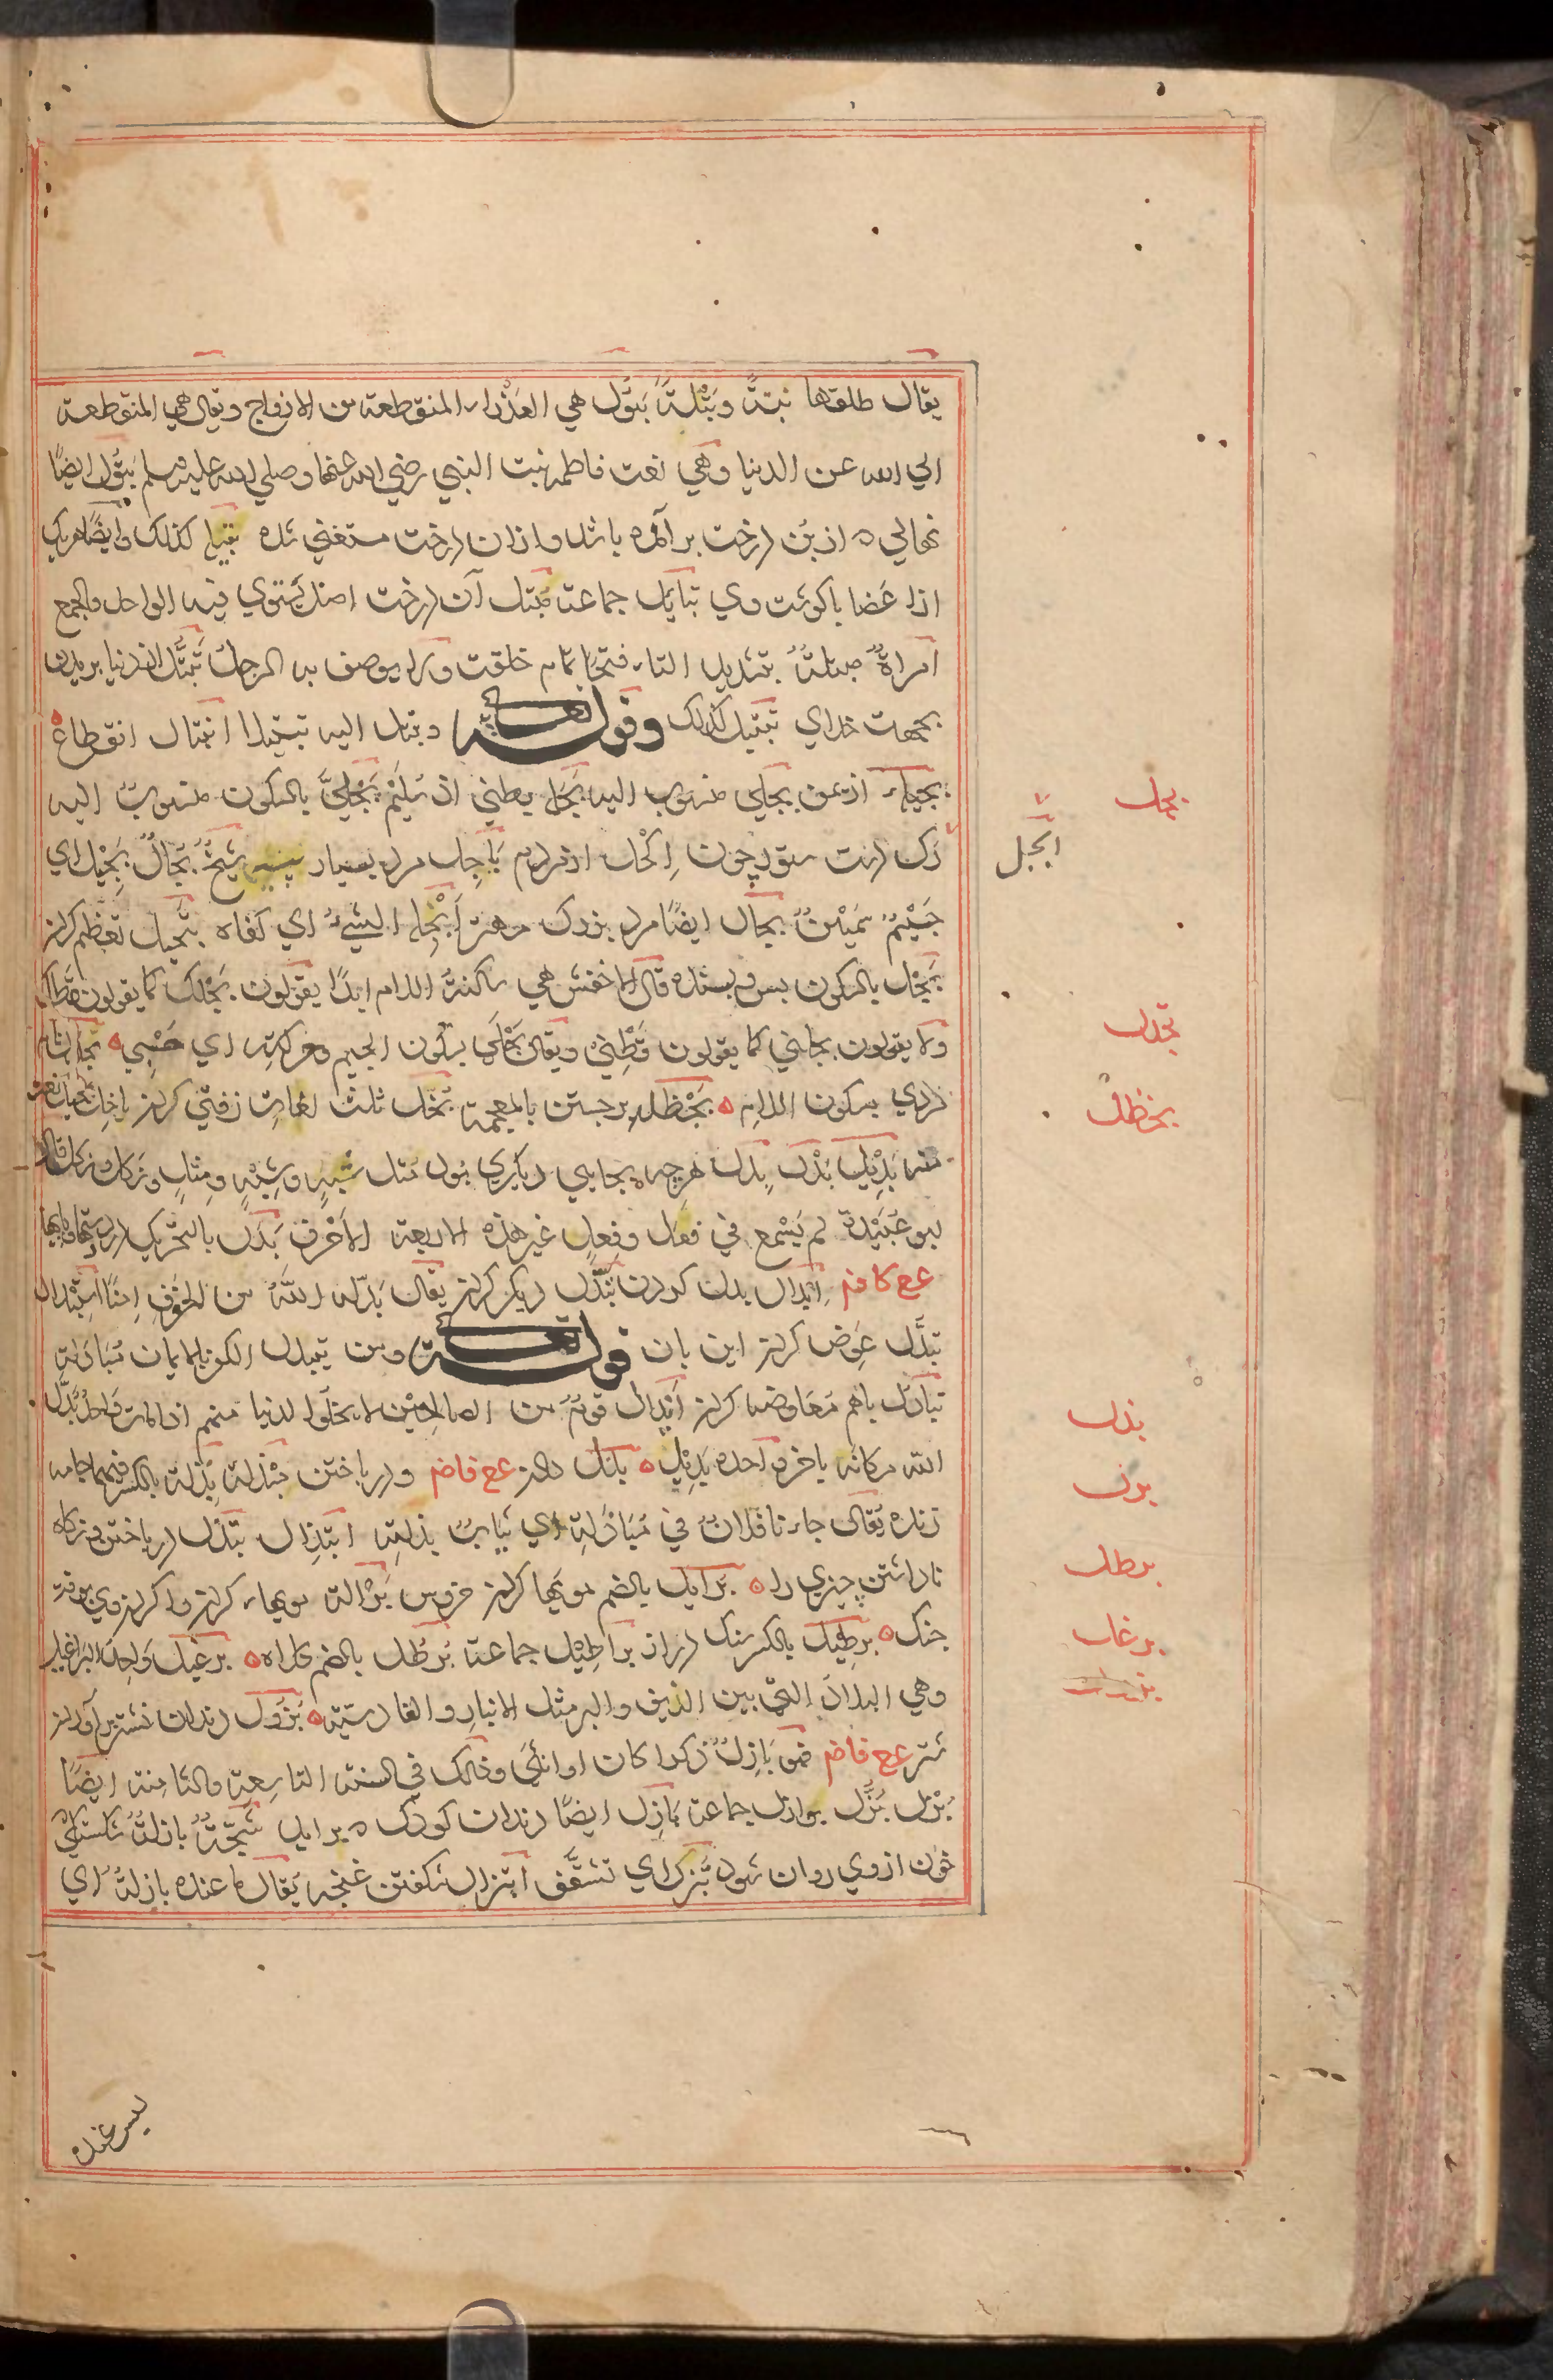 يقال طلقها بتةً وبتلةً بتول هي العذراء المنقطعة من الازواج ويقال هي المنقطعة
الي الله عن الدنيا وهي نعت فاطمه بنت النبي رضي الله عنها وصلي الله عليه وسلم بتول ايضًا
نهالي ٥ از بن درخت بر آمده باشد و از آن درخت مستغني شده بتيله كذلك وايضًا هريك
از اعضا با كوشت وي بتايل جماعت مبتل آن درخت اصل يستوي فيه الواحد والجمع
امراةٌ مبتلةٌ بتشديد التاء فتحًا تمام خلقت ولا يوصف به الرجل تبتل از دنيا بريدن
بجهت خداي تبتيل كذلك وقوله تعالى وتبتل اليه تبتيلا انبتال انقطاع
بجيله از يمن بجلي منسوب اليه بجله بطني از سليم بجليّ بالسكون منسوب اليه
رك دست ستور چون اكحل از مردم باجل مرد بسيار پيه شيخٌ بجالٌ بجيل اي
جسيمٌ سمينٌ بجال ايضًا مرد بزرك مهتر ابجله الشيءُ اي كفاه تبجيل تعظيم كردن
بجل بالسكون بس وبسنده قال الاخفش هي ساكنة اللام ابدًا يقولون بجلك كما يقولون قطك
ولا يقولون بجلني كما يقولون قطني ويقال بجلي بسكون الجيم وحركته اي حسبي ٥
بسكون اللام ٥ بخظله برجستن بالمعجمة بخل ثلث لغات زفتي كردن باخل بخيل نعت
منه بديل بدل بدل هرچه بجاي ديكري بود مثل شبه وشبه ومثل ونكل ونكل قال
ابو عبيدة لم يسمع في فعل وفعل غير هذه الاربعة الاحرف بدل بالتحريك درد دستها وپايها
ع ع كا فم ابدال بدل كردن تبدل ديكر كردن يقال بدّله اللّه من الخوف امنًا استبدال
تبدّل عوض كردن اين بان قوله تعالى ومن يتبدل الكفر بالايمان مبادلة
تبادل باهم معاوضه كردن ابدال قومٌ من الصالحين لا يخلو الدنيا منهم اذا مات واحد بدل
الله مكانه باخر واحده بديل ٥ بذل دادن ع ع فا ضم و در باختن مبذلة بذلة بالكسر فيهما جامه
زنده يقال جاءنا فلانٌ في مباذله اي ثياب بذلته ابتذال تبذل در باختن ونكاه
ناداشتن چيزي را ٥ برايل بالضم مويها كردن خروس برالة مويهاء كردن وا كردن وي بوقت
جنك ٥ برطيل بالكسر سنك دراز براطيل جماعة برطل بالضم كلاه ٥ برغيل واحد البراغيل
وهي البلاد التي بين الريف والبر مثل الانبار والقادسية ٥ بزول دندان نيشتر بر آوردن
شتر ع ع فا ضم فهو بازلٌ ذكرا كان او انثي وذلك في السنة التاسعة والثامنة ايضًا
بزل بزّل بوازل جماعة بازل ايضًا دندان كودك ٥ برايد شجّةٌ بازلةٌ شكستكي
خون از وي روان شود تبزل اي تشقّق ابتزال شكفتن غنچه يقال ما عنده بازلةٌ اي
بجل
ابجل
بخدل
بخظل
بذل
برطل
برغل
ليس عنده